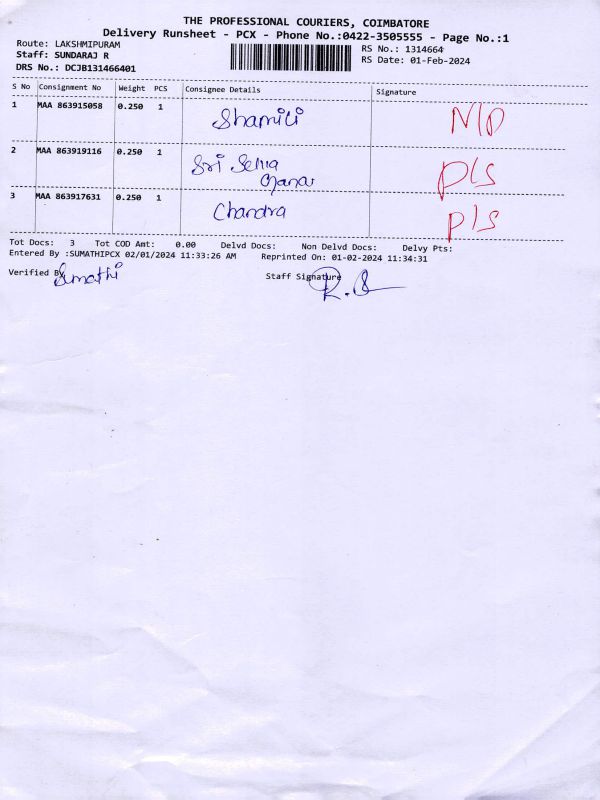 THE PROFESSIONAL COURIERS, COIMBATORE
Delivery Runsheet - PCX - Phone No.:0422-3505555 - Page No.:1
Route: LAKSHMIPURAM
Staff: SUNDARAJ R
DRS No.: DCJB131466401
RS No.: 1314664
RS Date: 01-Feb-2024
S No Consignment No Weight PCS Consignee Details Signature
1 MAA 863915058 0.250 1 Shamili N/D
2 MAA 863919116 0.250 1 Sri
P/S
3 MAA 863917631 0.250 1 Chandra P/S
Tot Docs: 3 Tot COD Amt: 0.00 Delvd Docs: Non Delvd Docs: Delvy Pts:
Entered By :SUMATHIPCX 02/01/2024 11:33:26 AM Reprinted On: 01-02-2024 11:34:31
Verified By Sumathi Staff Signature